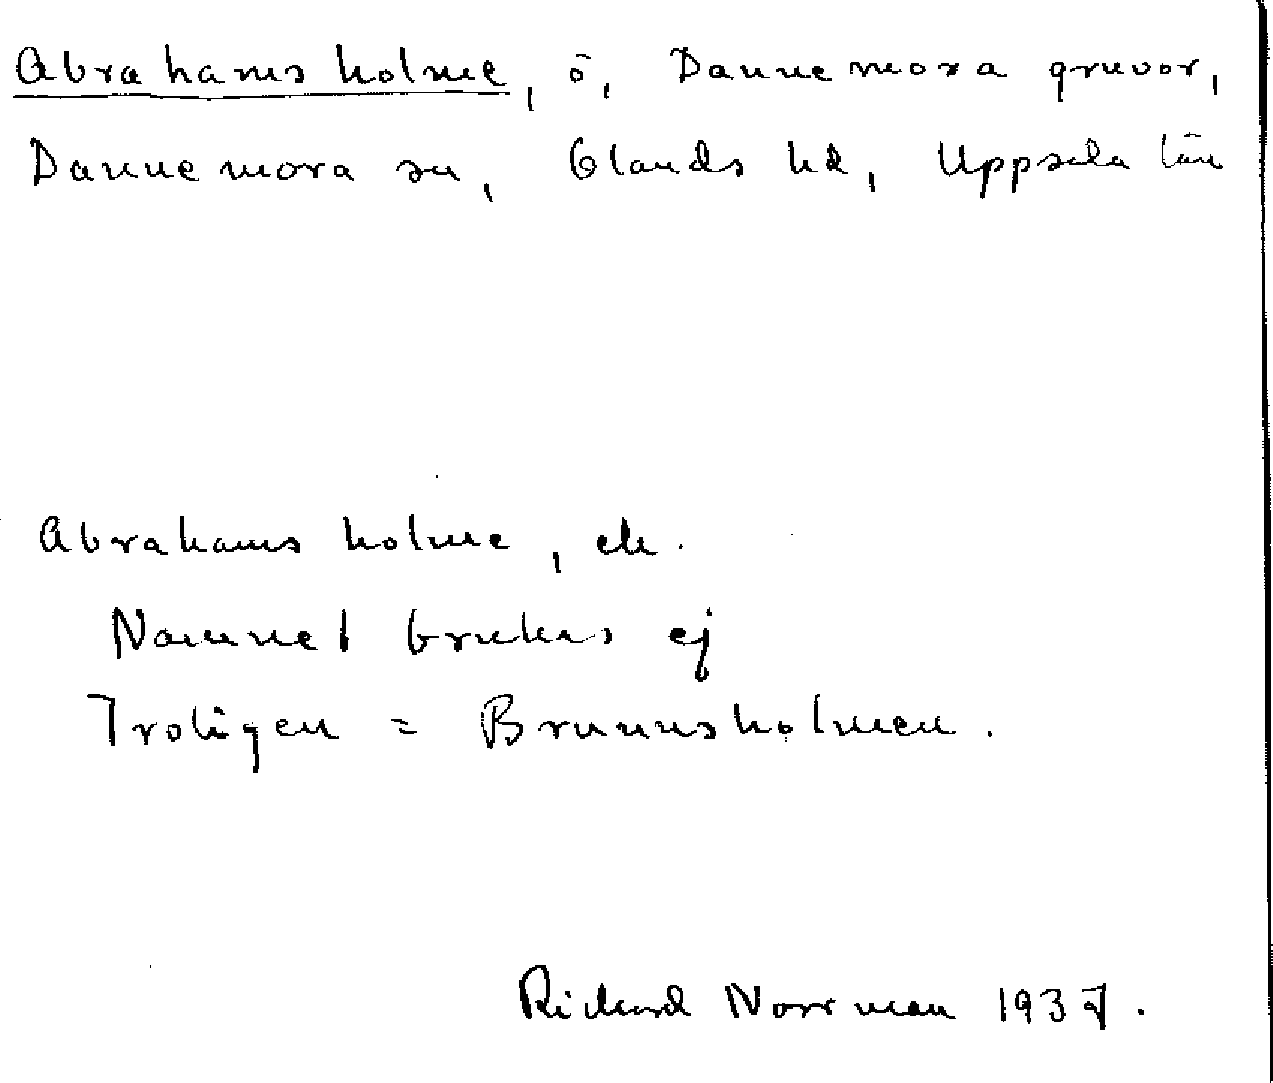 Abrahams holme, ö, Dannemora gruvor,
Dannemora sn, Olands hd, Uppsala län
Abrahams holme, ek.
Namnet brukas ej
Troligen = Brunnsholmen.
Rickard Norrman 1937.